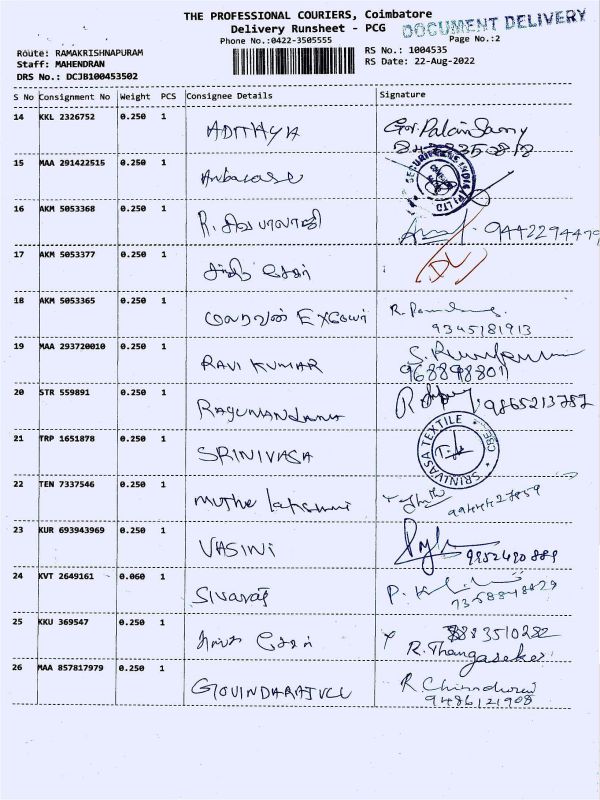 THE PROFESSIONAL COURIERS, Coimbatore
Delivery Runsheet - PCG
DOCUMENT DELIVERY
Phone No.:0422-3505555
Page No.:2
Route: RAMAKRISHNAPURAM
Staff: MAHENDRAN
DRS No.: DCJB100453502
RS No.: 1004535
RS Date: 22-Aug-2022
S No Consignment No Weight PCS Consignee Details Signature
14 KKL 2326752 0.250 1 ADITHAYA
15 MAA 291422515 0.250 1
16 AKM 5053368 0.250 1 R. சிவபாலாஜி 9442294479
17 AKM 5053377 0.250 1
18 AKM 5053365 0.250 1 R.
9345181913
19 MAA 293720010 0.250 1 RAVI KUMAR S.
9688988011
20 STR 559891 0.250 1 RAGUNANDANA 9865213787
21 TRP 1651878 0.250 1 SRINIVASA SRINIVASA TEXTILE CBE
22 TEN 7337546 0.250 1 Muthu lakshmi
9944427859
23 KUR 693943969 0.250 1 VASINI 9952490889
24 KVT 2649161 0.060 1 Sivaraj P.
7358848829
25 KKU 369547 0.250 1 8883510282
R. Thangasekar
26 MAA 857817979 0.250 1 GOVINDARAJULU R
9486121908